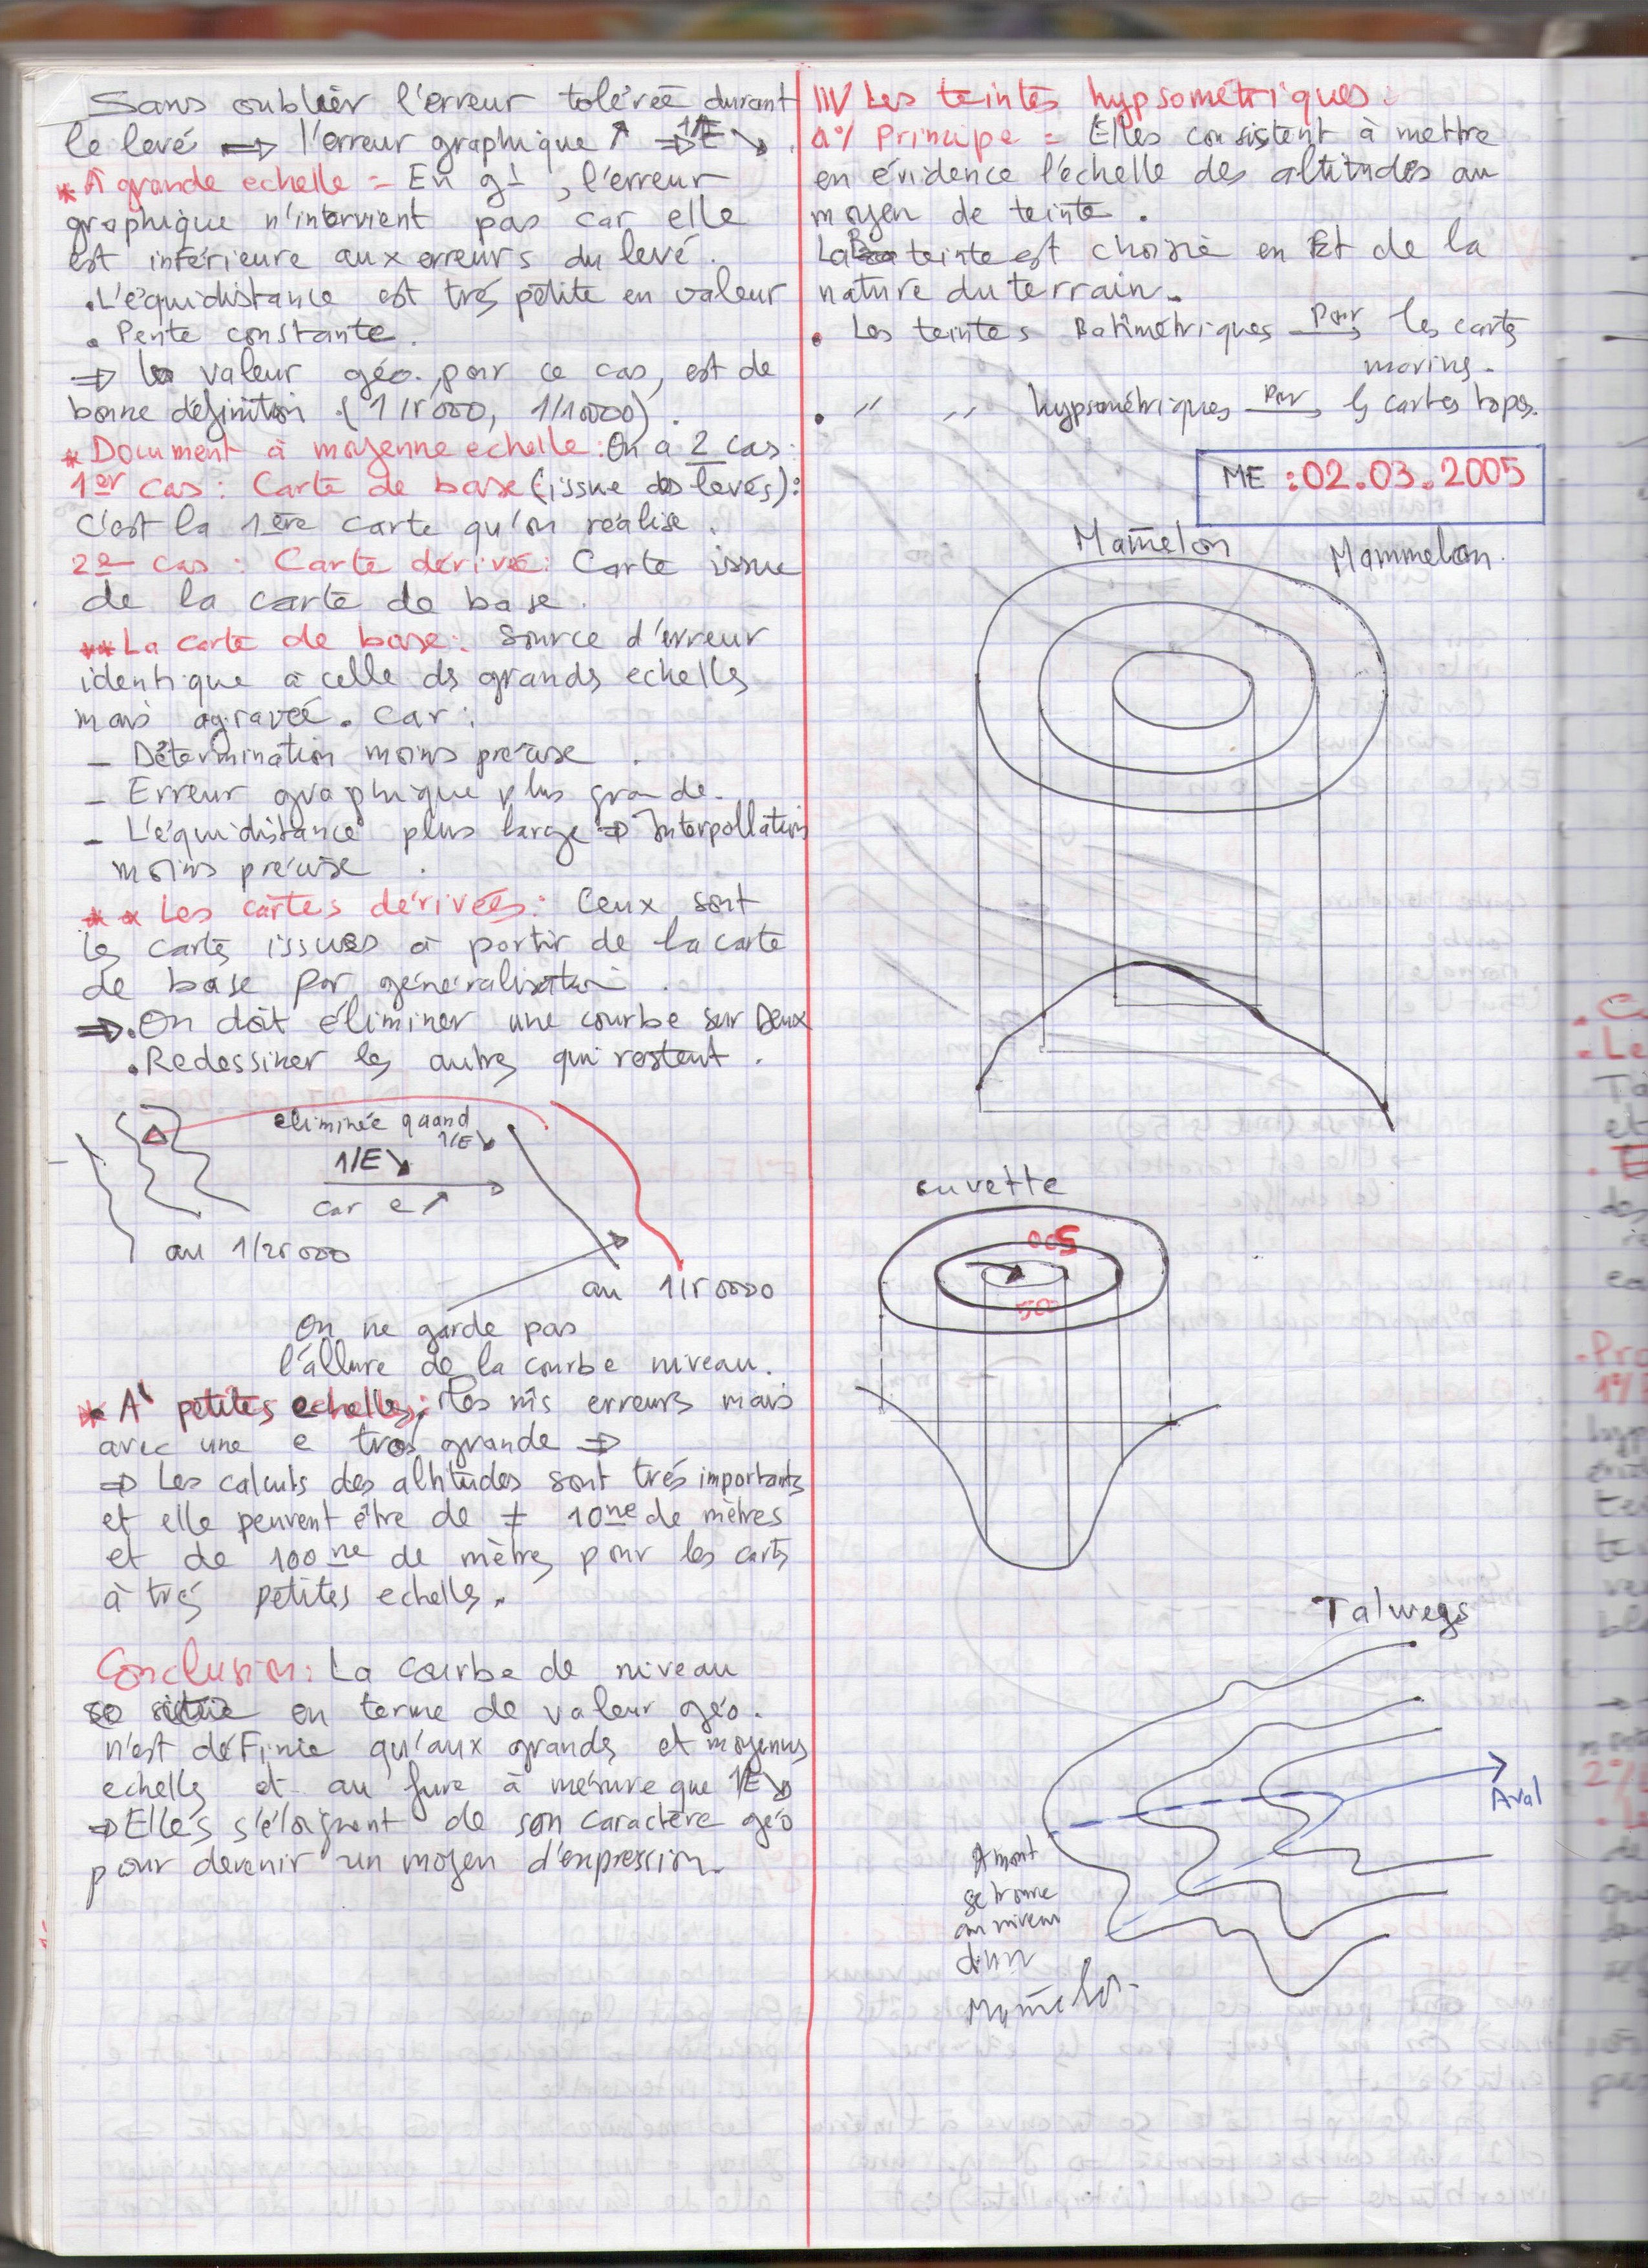 Sans oublier l'erreur tolérée durant
le levé ⟹ l'erreur graphique ↗ ⟹ 1/E ↘.
* A grande echelle = En gl, l'erreur
graphique n'intervient pas car elle
est inférieure aux erreurs du levé.
. L'équidistance est trés petite en valeur
. Pente constante.
⟹ la valeur géo. pour ce cas, est de
bonne définition (1/5000, 1/10000).
* Document à moyenne echelle: On a 2 cas:
1er cas: Carte de base (issue des levés):
C'est la 1ère carte qu'on réalise.
2e cas: Carte dérivé: Carte issue
de la carte de base.
** La carte de base: Source d'erreur
identique à celle ds grands echelles
mais agravée. Car:
- Détermination moins précise.
- Erreur graphique plus grande.
- L'équidistance plus large ⟹ Interpollation
moins précise.
** Les cartes dérivées: Ceux sont
les cartes issues à partir de la carte
de base par généralisation.
⟹. On doit éliminer une courbe sur Deux
. Redessiner les autres qui restent.
eliminée quand
1/E ↘
1/E ↘
car e ↗
au 1/25000
au 1/50000
On ne garde pas
l'allure de la courbe niveau.
* A petites echelles: Les ms erreurs mais
avec une e tres grande ⟹
⟹ Les calculs des altitudes sont trés importants
et elle peuvent être de ≠ 10ne de mètres
et de 100ne de mètres pour les cartes
à trés petites echelles.
Conclusion: La courbe de niveau
se situe en terme de valeur géo.
n'est définie qu'aux grands et moyennes
echelles et au fure à mesure que 1/E ↘
⟹ Elles s'éloignent de son caractère géo
pour devenir un moyen d'expression.
IV Les teintes hypsométriques:
a% Principe = Elles consistent à mettre
en évidence l'échelle des altitudes au
moyen de teinte.
La teinte est choisie en Et de la
nature du terrain.
. Les teintes Batimétriques pour les cartes
marins.
. " " hypsométriques pour les cartes topos.
ME : 02.03.2005
Mamelon
Mammelon.
cuvette
500
500
Talwegs
Aval
Amont
se trouve
au niveau
d'un
Mamelon.